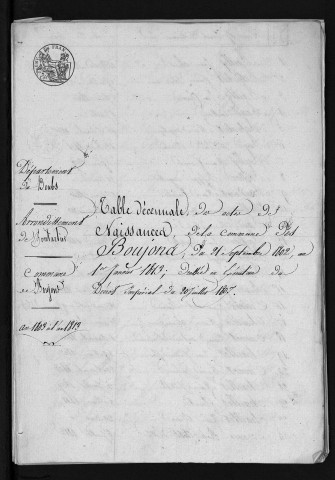 Département
du Doubs
Arrondissement
de Pontarlier
Commune
de Boujons
an 1803 à l'an 1813
Table décennale des actes des
Naissances, de la commune des
Boujons, du 21 Septembre 1802, au
1er Janvier 1813; dressée en Exécution du
Décret Impérial du 20 Juillet 1807.